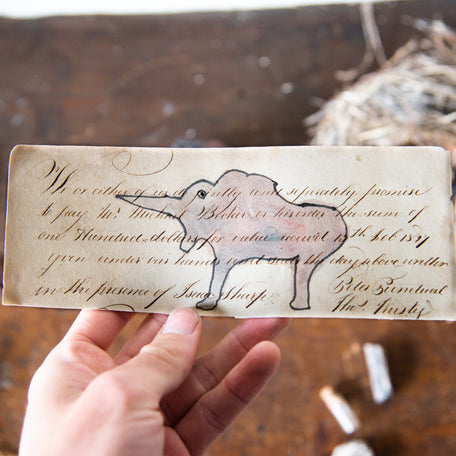 We or either of us jointly and separately promise
to pay Mr. Michael Becker or his order the sum of
one Hundred dollars for value received 10th Feb 1827
given under our hands and seals the day above written
in the presence of Isaac Sharpe Peter Perkdual
Thos.